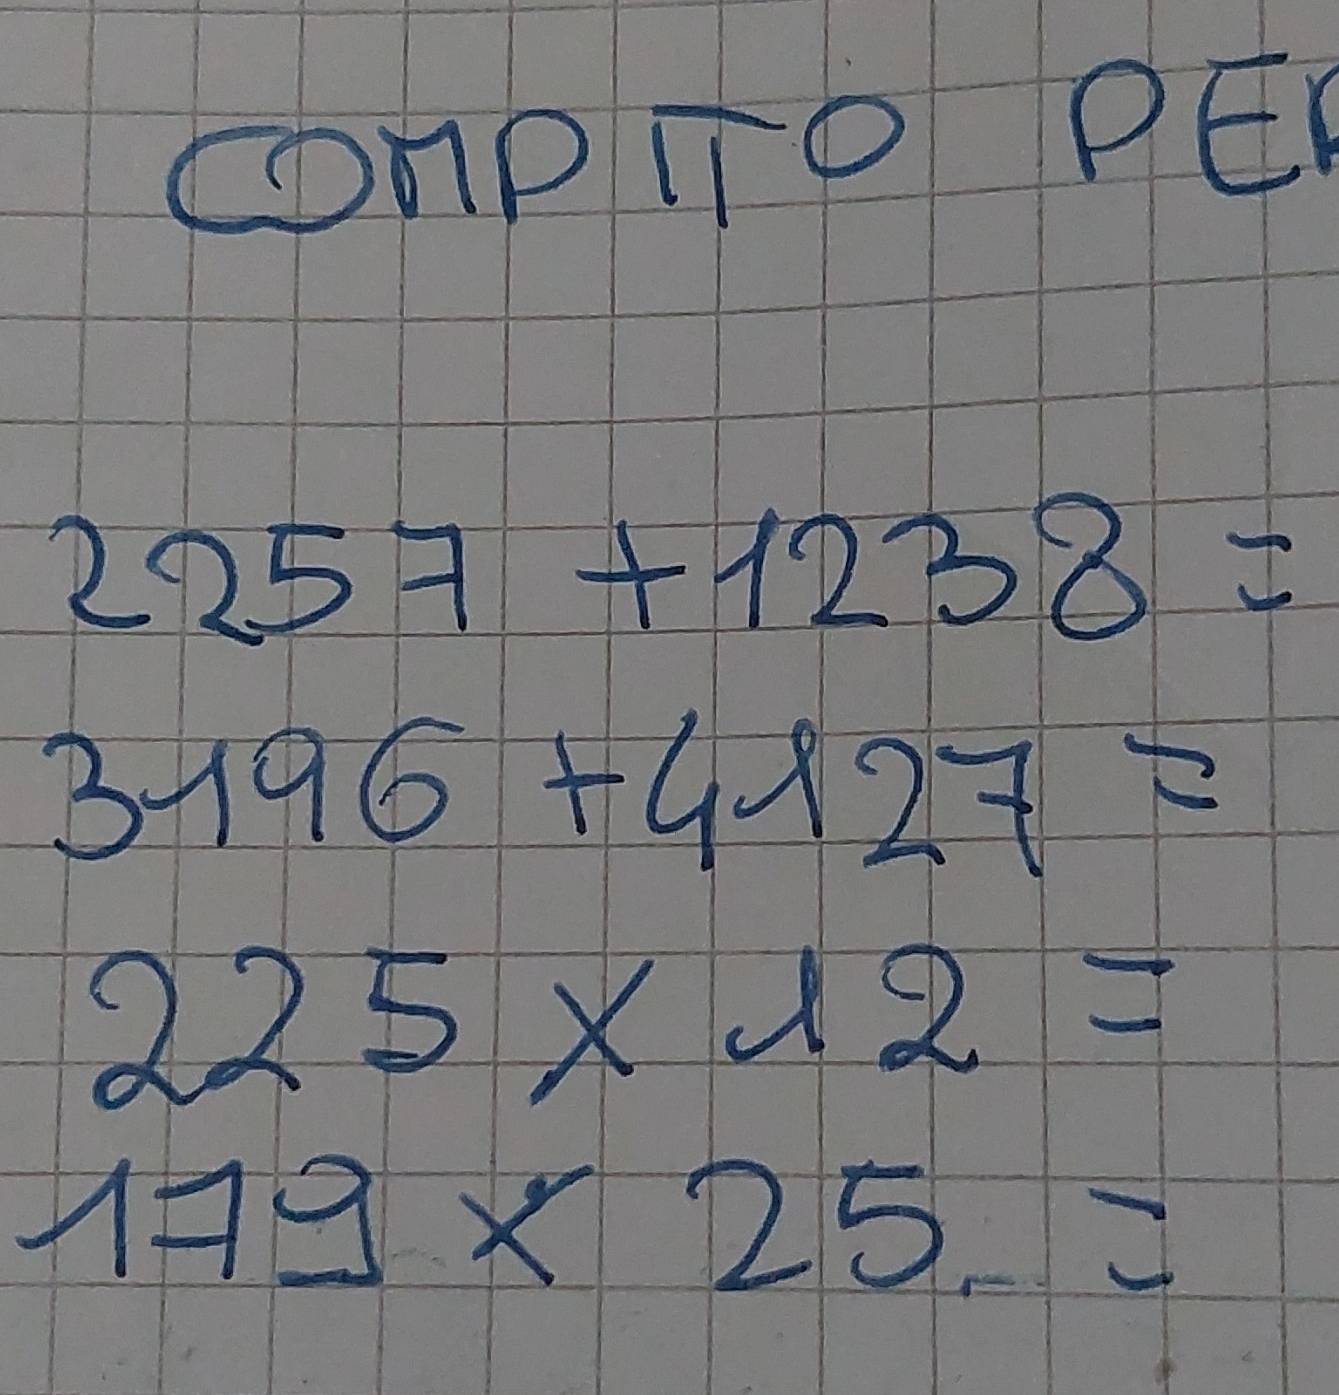 COMPITO PER
2257 + 1238 =
3196 + 4127 =
225 x 12 =
179 x 25 =